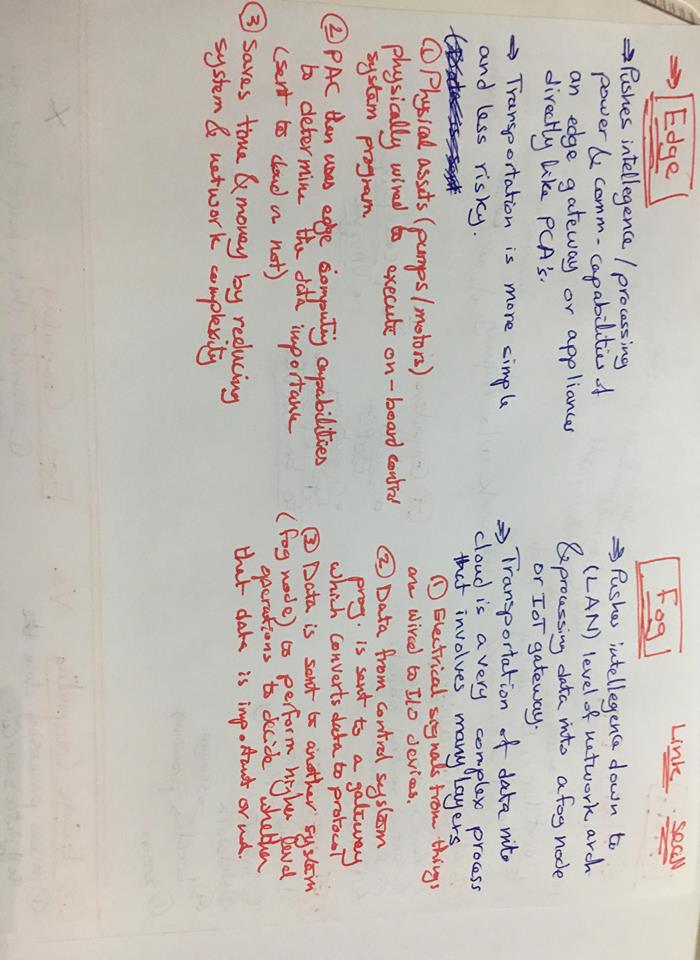 ⇒ Edge
⇒ Pushes intellegence / processing
power & comm - capabilities of
an edge gateway or appliances
directly like PCA's.
⇒ Transportation is more simple
and less risky.
① Physical assets (pumps/motors)
physically wired to execute on-board control
system program.
② PAC then uses edge computing capabilities
to determine the data importance
(sent to cloud or not)
③ Saves time & money by reducing
system & network complexity
Fog
Link
⇒ Pushes intellegence down to
(LAN) level of network arch
& processing data into a fog node
or IoT gateway.
⇒ Transportation of data into
cloud is a very complex process
that involves many layers
① Electrical signals from things
are wired to I/O devices.
② Data from control system
prog. is sent to a gateway
which converts data to protocol
③ Data is sent to another system
(fog node) to perform higher level
operations to decide whether
that data is important or not.